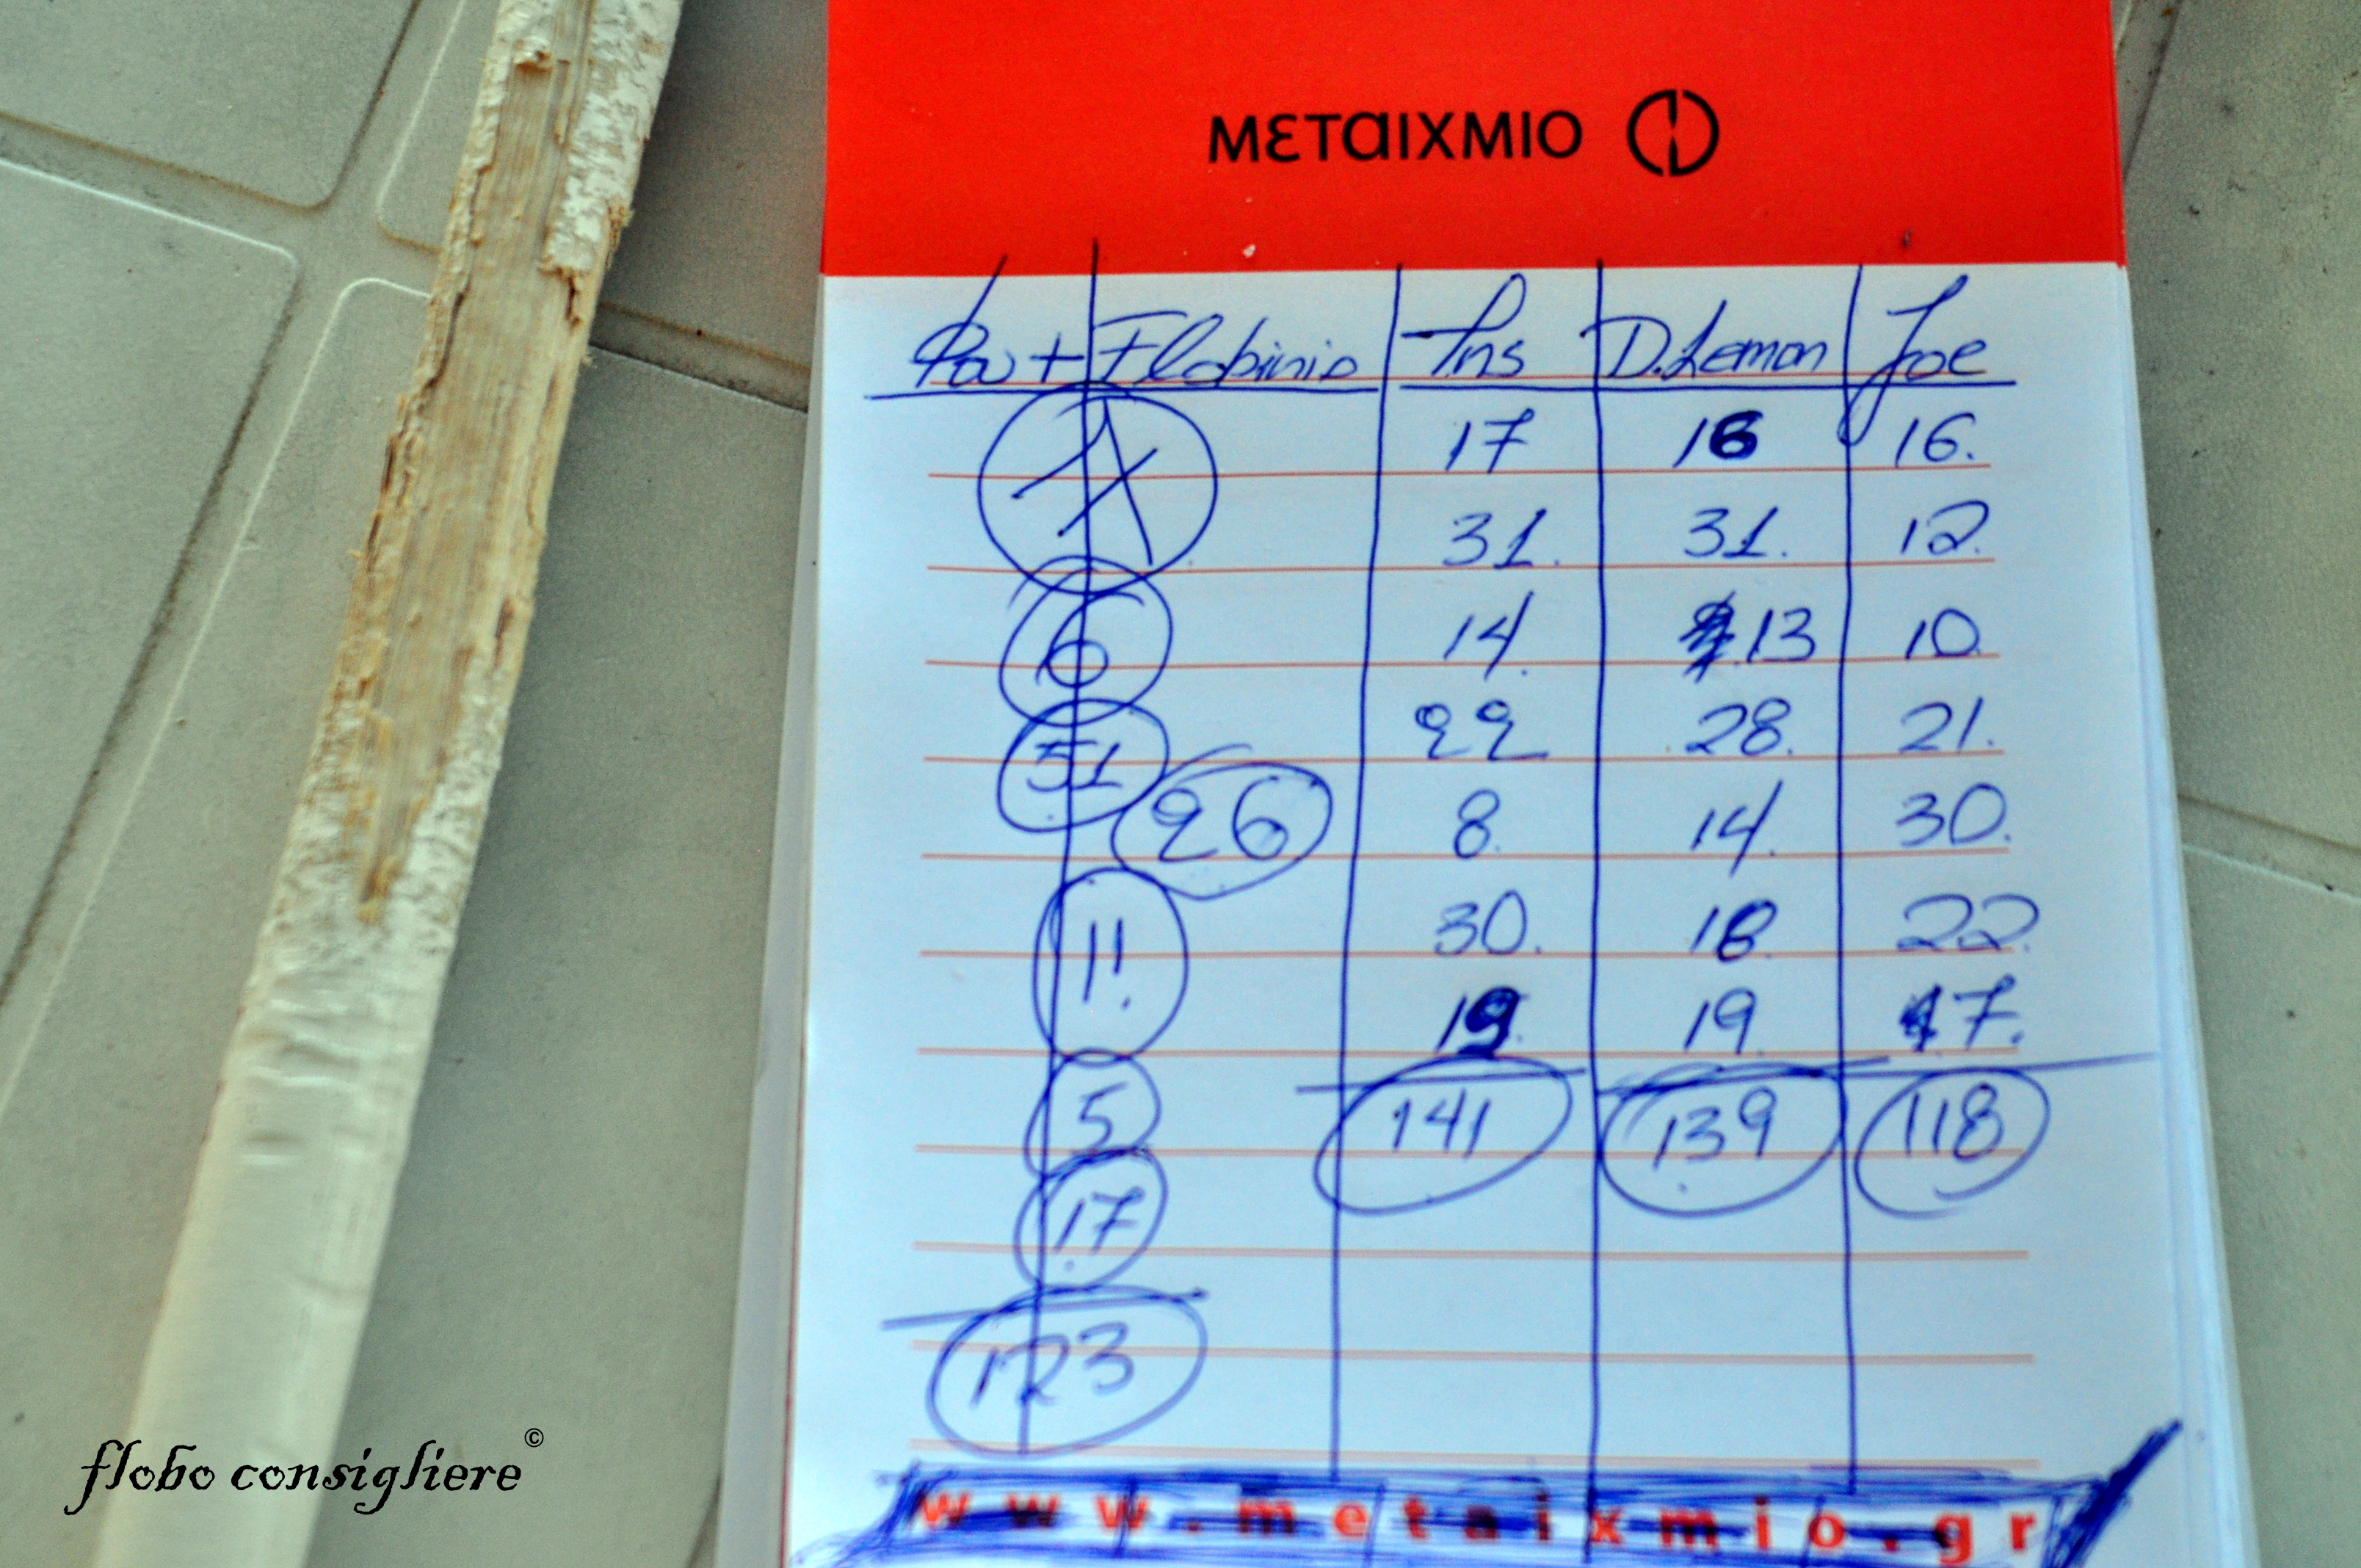 μεταιχμιο
Pa + Flobinio Ins D.Lemon Joe
17 16 16.
31. 31. 12.
6 14. 13 10.
51 22 28. 21.
26 8. 14. 30.
11. 30. 18. 22.
19. 19. 17.
5 141 139 118
17
123
www.metaixmio.gr
flobo consigliere ©